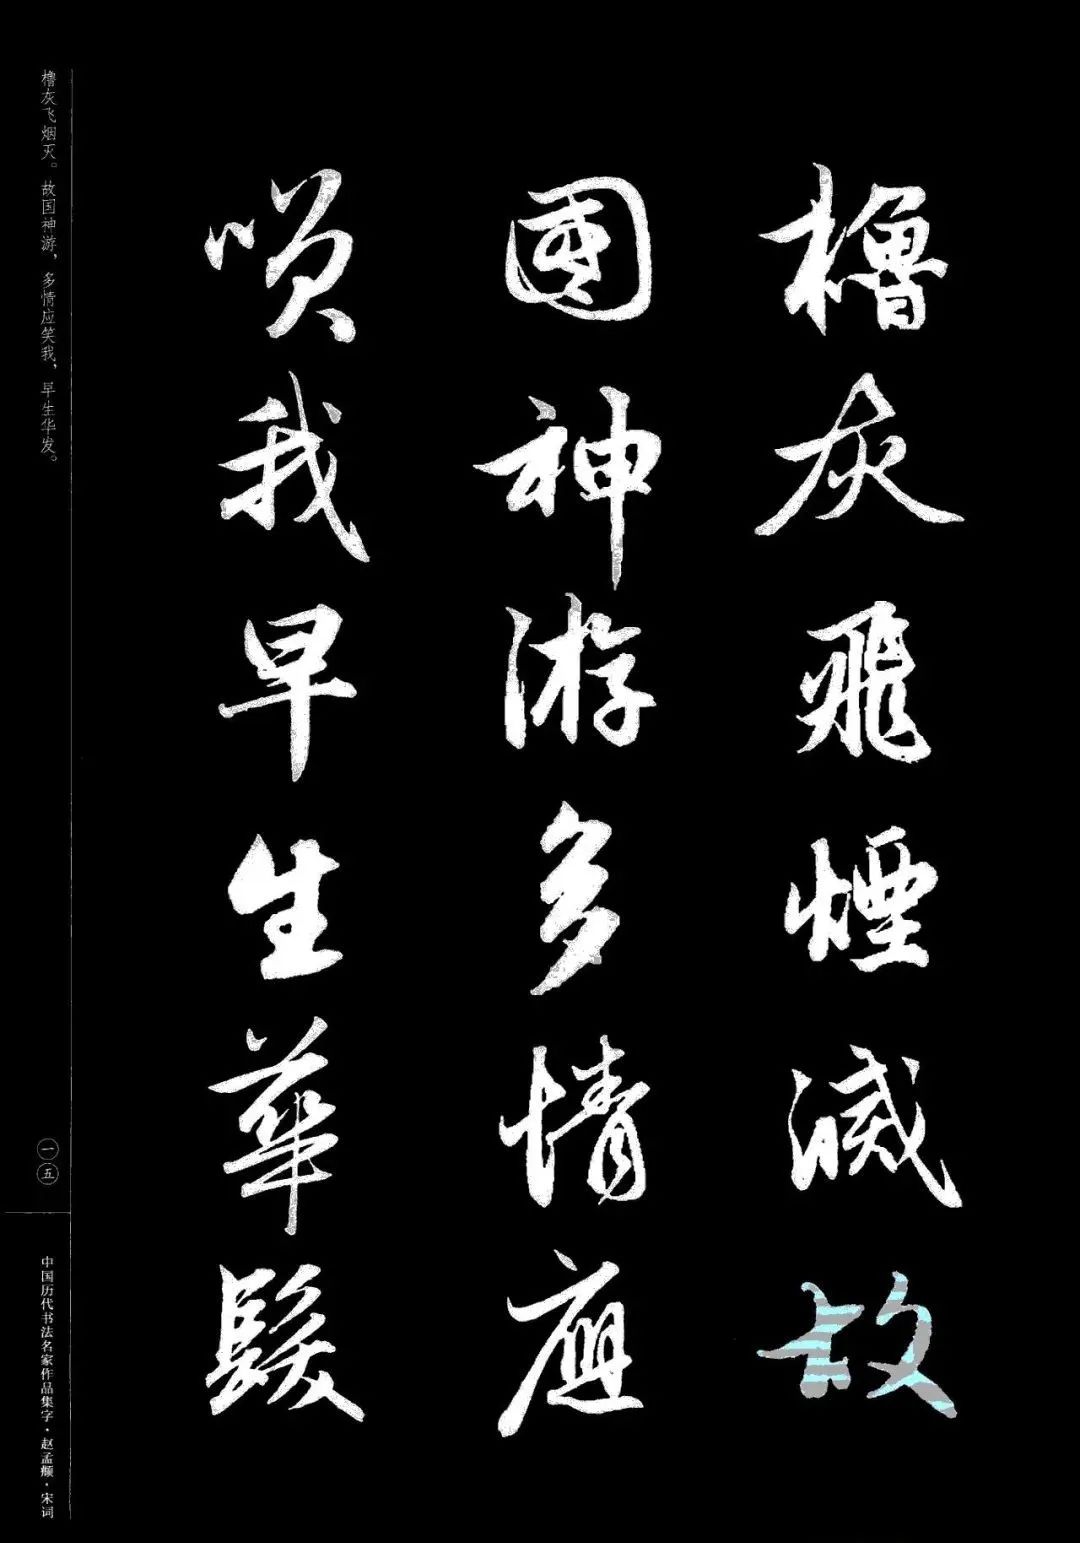 櫓灰飛煙滅故
國神游多情應
唉我早生華髮
櫓灰飞烟灭。故国神游，多情应笑我，早生华发。
一五
中国历代书法名家作品集字·赵孟頫·宋词